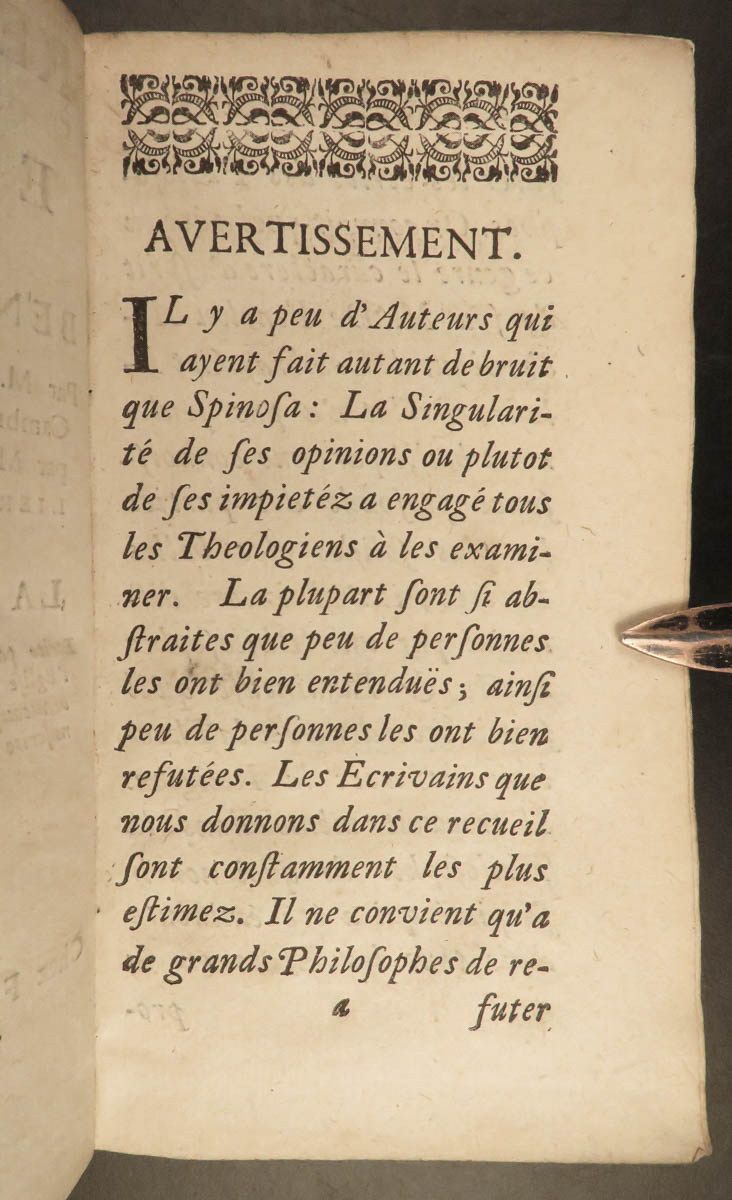 AVERTISSEMENT.
IL y a peu d'Auteurs qui
ayent fait autant de bruit
que Spinoſa : La Singulari-
té de ſes opinions ou plutot
de ſes impietéz a engagé tous
les Theologiens à les exami-
ner. La plupart ſont ſi ab-
ſtraites que peu de perſonnes
les ont bien entenduës ; ainſi
peu de perſonnes les ont bien
refutées. Les Ecrivains que
nous donnons dans ce recueil
ſont conſtamment les plus
eſtimez. Il ne convient qu'a
de grands Philoſophes de re-
a futer